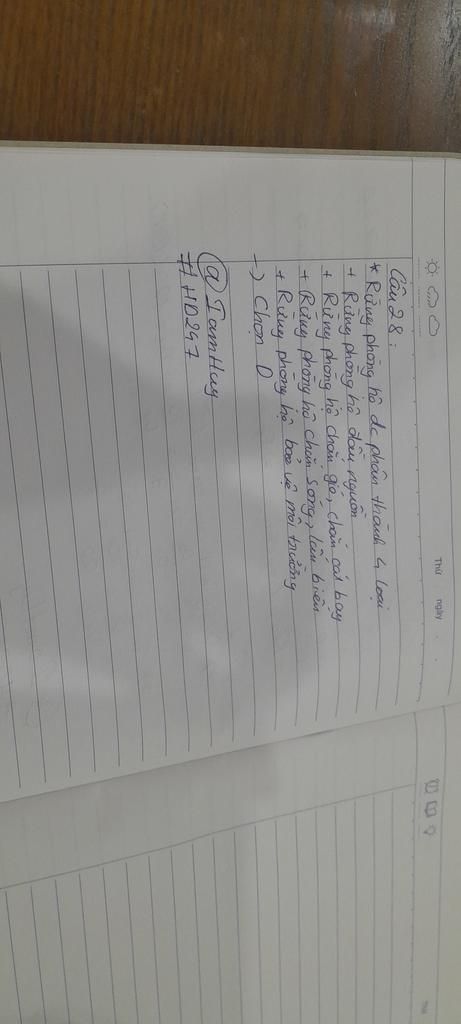 Thứ
ngày
Câu 28:
* Rừng phòng hộ đc phân thành 4 loại
+ Rừng phòng hộ đầu nguồn
+ Rừng phòng hộ chắn gió, chắn cát bay
+ Rừng phòng hộ chắn sóng, lấn biển
+ Rừng phòng hộ bảo vệ môi trường
→ Chọn D
@ TamHuy
# HD247